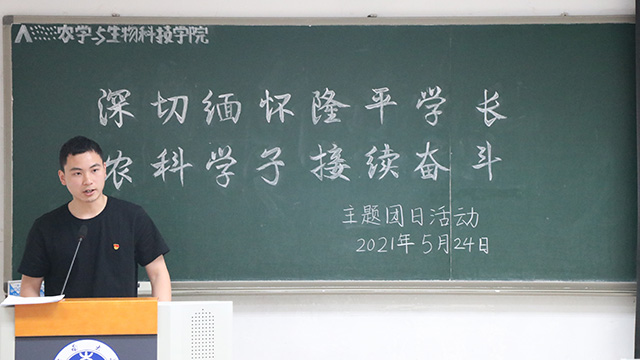 农学与生物科技学院
深切缅怀隆平学长
农科学子接续奋斗
主题团日活动
2021年5月24日